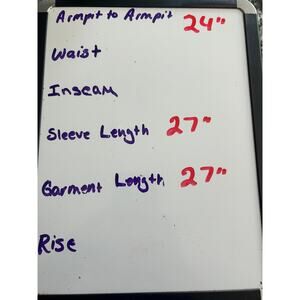 Armpit to Armpit 24"
Waist
Inseam
Sleeve Length 27"
Garment Length 27"
Rise